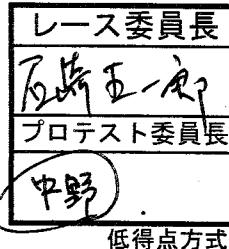 レース委員長
石崎圭一郎
プロテスト委員長
中野
低得点方式